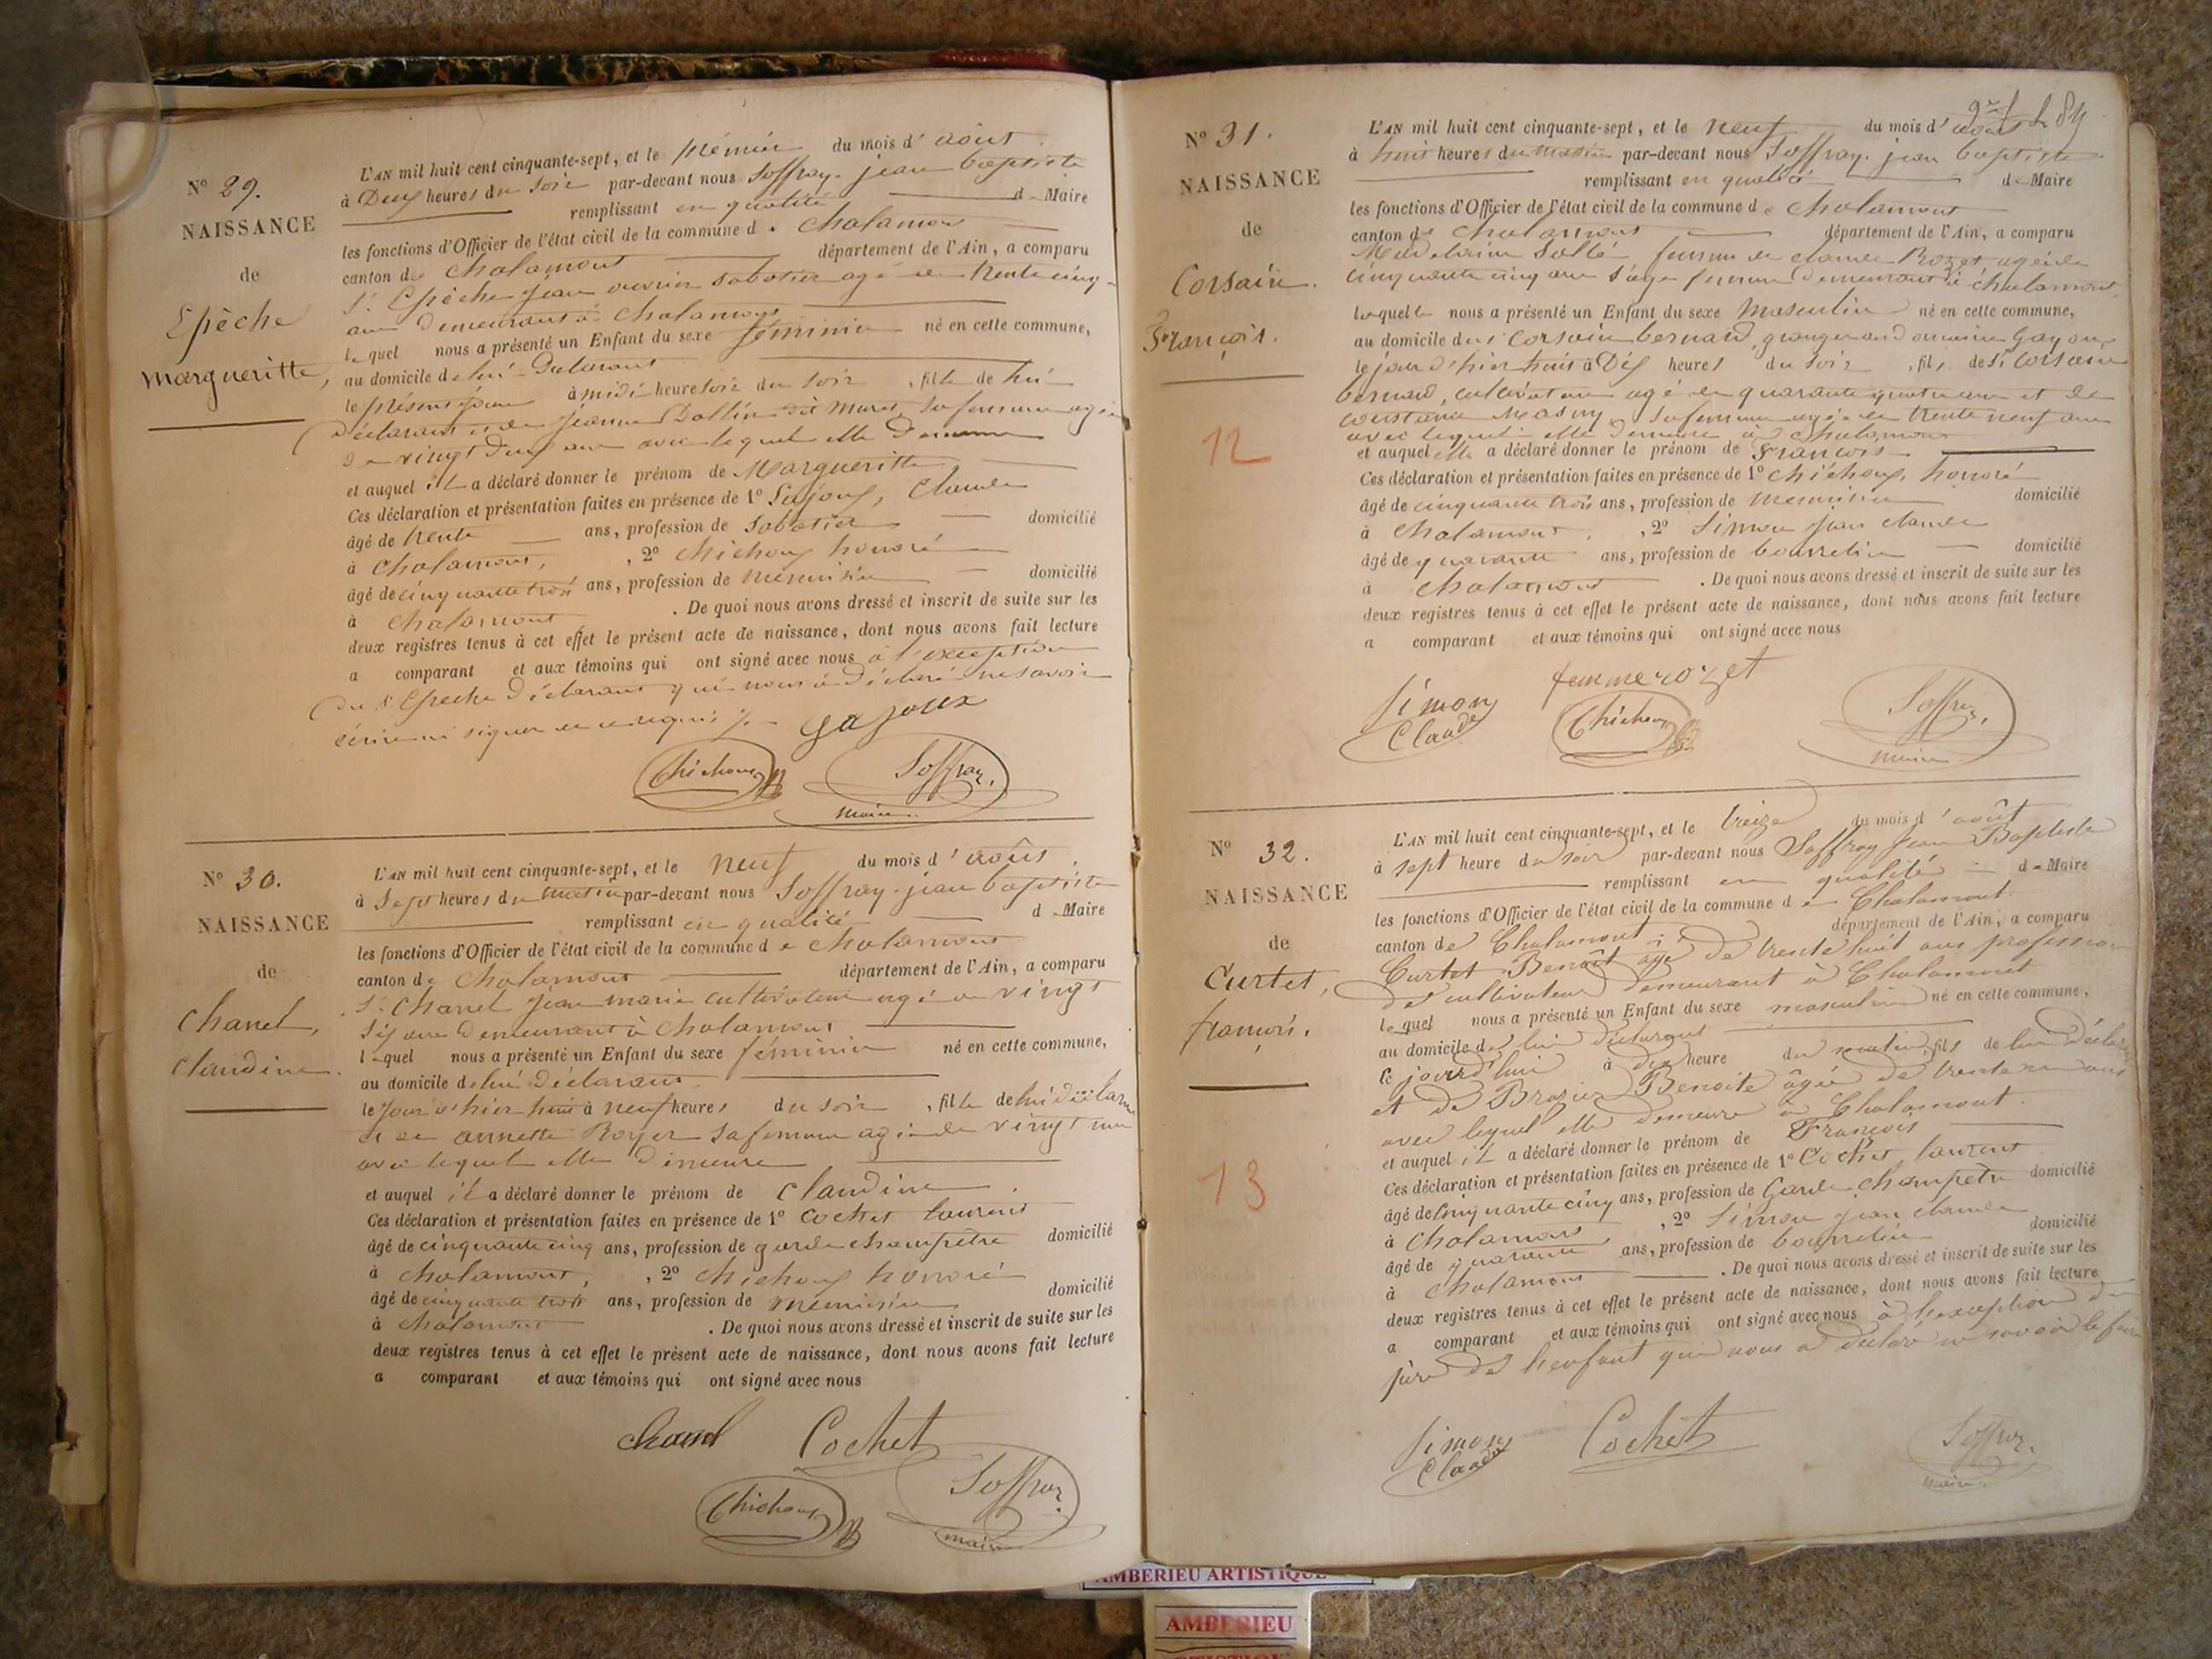 N° 29.
NAISSANCE
de
Epèche
Margueritte,
L'AN mil huit cent cinquante-sept, et le premier du mois d'août
à Deux heures du soir par-devant nous Soffray jean baptiste
remplissant en qualité de Maire
les fonctions d'Officier de l'état civil de la commune de Chalamont
canton de Chalamont département de l'Ain, a comparu
Sr Epèche Jean ouvrier sabotier agé de trente cinq
ans demeurant à Chalamont
lequel nous a présenté un Enfant du sexe féminin né en cette commune,
au domicile de lui Déclarant
le présent jour à midi heure du soir, fille de lui
Déclarant et de Jeanne sa femme agée
de vingt Deux ans avec lequel elle Demeure
et auquel il a déclaré donner le prénom de Margueritte
Ces déclaration et présentation faites en présence de 1° Gajoux, Claude
âgé de trente ans, profession de Sabotier domicilié
à Chalamont, , 2° Chichoux honoré
âgé de cinquante trois ans, profession de menuisier domicilié
à Chalamont . De quoi nous avons dressé et inscrit de suite sur les
deux registres tenus à cet effet le présent acte de naissance, dont nous avons fait lecture
a comparant et aux témoins qui ont signé avec nous à l'exception
du Sr Epeche Déclarant qui nous a Déclaré ne savoir
écrire ni signer de ce requis
gajoux
Chichoux Soffray
maire
N° 30.
NAISSANCE
de
Chanel,
Claudine.
L'AN mil huit cent cinquante-sept, et le neuf du mois d'août
à Sept heures du matin par-devant nous Soffray jean baptiste
remplissant en qualité de Maire
les fonctions d'Officier de l'état civil de la commune de Chalamont
canton de Chalamont département de l'Ain, a comparu
Sr Chanel Jean marie cultivateur agé de vingt
Six ans demeurant à Chalamont
lequel nous a présenté un Enfant du sexe féminin né en cette commune,
au domicile de lui Déclarant
le Jour d'hier huit à neuf heures du soir, fille de lui déclarant
et de annette Royer sa femme agée de vingt
avec lequel elle Demeure
et auquel il a déclaré donner le prénom de Claudine
Ces déclaration et présentation faites en présence de 1° Cochet laurent
âgé de cinquante cinq ans, profession de garde champêtre domicilié
à Chalamont, , 2° Chichoux honoré
âgé de cinquante trois ans, profession de menuisier domicilié
à Chalamont . De quoi nous avons dressé et inscrit de suite sur les
deux registres tenus à cet effet le présent acte de naissance, dont nous avons fait lecture
a comparant et aux témoins qui ont signé avec nous
Chanel Cochet
Chichoux Soffray
maire
N° 31.
NAISSANCE
de
Corsain.
François.
12
L'AN mil huit cent cinquante-sept, et le neuf du mois d'août
à huit heures du matin par-devant nous Soffray jean baptiste
remplissant en qualité de Maire
les fonctions d'Officier de l'état civil de la commune de Chalamont
canton de Chalamont département de l'Ain, a comparu
Madelaine femme de claude Rozet agée de
cinquante cinq ans Sage femme Demeurant à Chalamont
laquelle nous a présenté un Enfant du sexe Masculin né en cette commune,
au domicile du Sr Corsain bernard, granger au Domaine
le jour d'hier huit à Dix heures du soir, fils de Sr Corsain
bernard, cultivateur agé de quarante quatre ans et de
constance sa femme agée de trente neuf ans
avec lequel elle Demeure à Chalamont
et auquel elle a déclaré donner le prénom de François
Ces déclaration et présentation faites en présence de 1° Chichoux, honoré
âgé de cinquante trois ans, profession de menuisier domicilié
à Chalamont, , 2° Simon Jean claude
âgé de quarante ans, profession de bourrelier domicilié
à Chalamont . De quoi nous avons dressé et inscrit de suite sur les
deux registres tenus à cet effet le présent acte de naissance, dont nous avons fait lecture
a comparant et aux témoins qui ont signé avec nous
Simon femme rozet
Claude Chichoux Soffray
maire
N° 32.
NAISSANCE
de
Curtet,
françois.
13
L'AN mil huit cent cinquante-sept, et le treize du mois d'août
à sept heure du soir par-devant nous Soffray Jean Baptiste
remplissant en qualité de Maire
les fonctions d'Officier de l'état civil de la commune de Chalamont
canton de Chalamont département de l'Ain, a comparu
Curtet Benoît âgé de trente huit ans profession
de cultivateur demeurant à Chalamont
lequel nous a présenté un Enfant du sexe masculin né en cette commune,
au domicile de lui déclarant
le jourd'hui à heure du matin, fils de lui Déclarant
et de Brazier Benoite âgée de trente ans
avec lequel elle demeure à Chalamont.
et auquel il a déclaré donner le prénom de François
Ces déclaration et présentation faites en présence de 1° Cochet, laurent
âgé de cinquante cinq ans, profession de Garde champêtre domicilié
à Chalamont, , 2° Simon jean claude
âgé de quarante ans, profession de bourrelier domicilié
à Chalamont . De quoi nous avons dressé et inscrit de suite sur les
deux registres tenus à cet effet le présent acte de naissance, dont nous avons fait lecture
a comparant et aux témoins qui ont signé avec nous à l'exception du
père de l'enfant qui nous a déclaré ne savoir le faire
Simon Cochet Soffray
Claude maire
AMBERIEU ARTISTIQUE
AMBERIEU